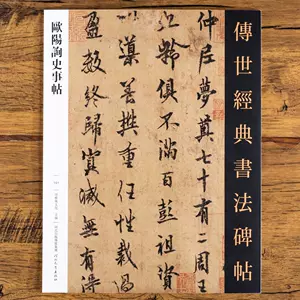 傳世經典書法碑帖
仲尼夢奠七十有二周王
九齡俱不滿百彭祖資
以導養樊重任性裁過
盈數終歸冥滅無有得
歐陽詢史事帖